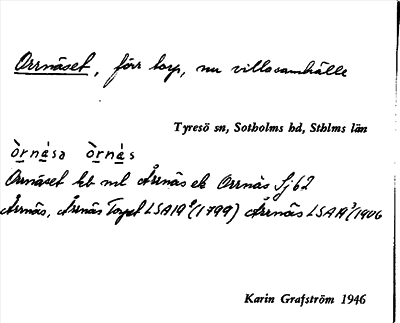 Orrnäset, förr torp, nu villasamhälle
Tyresö sn, Sotholms hd, Sthlms län
òrnása òrnás
Orrnäset kb ml Årrnäs ek Orrnäs Sj62
Årrnäs, Årrnäs Torpet LSA19²(1799) Årrnäs LSA19³/1906
Karin Grafström 1946